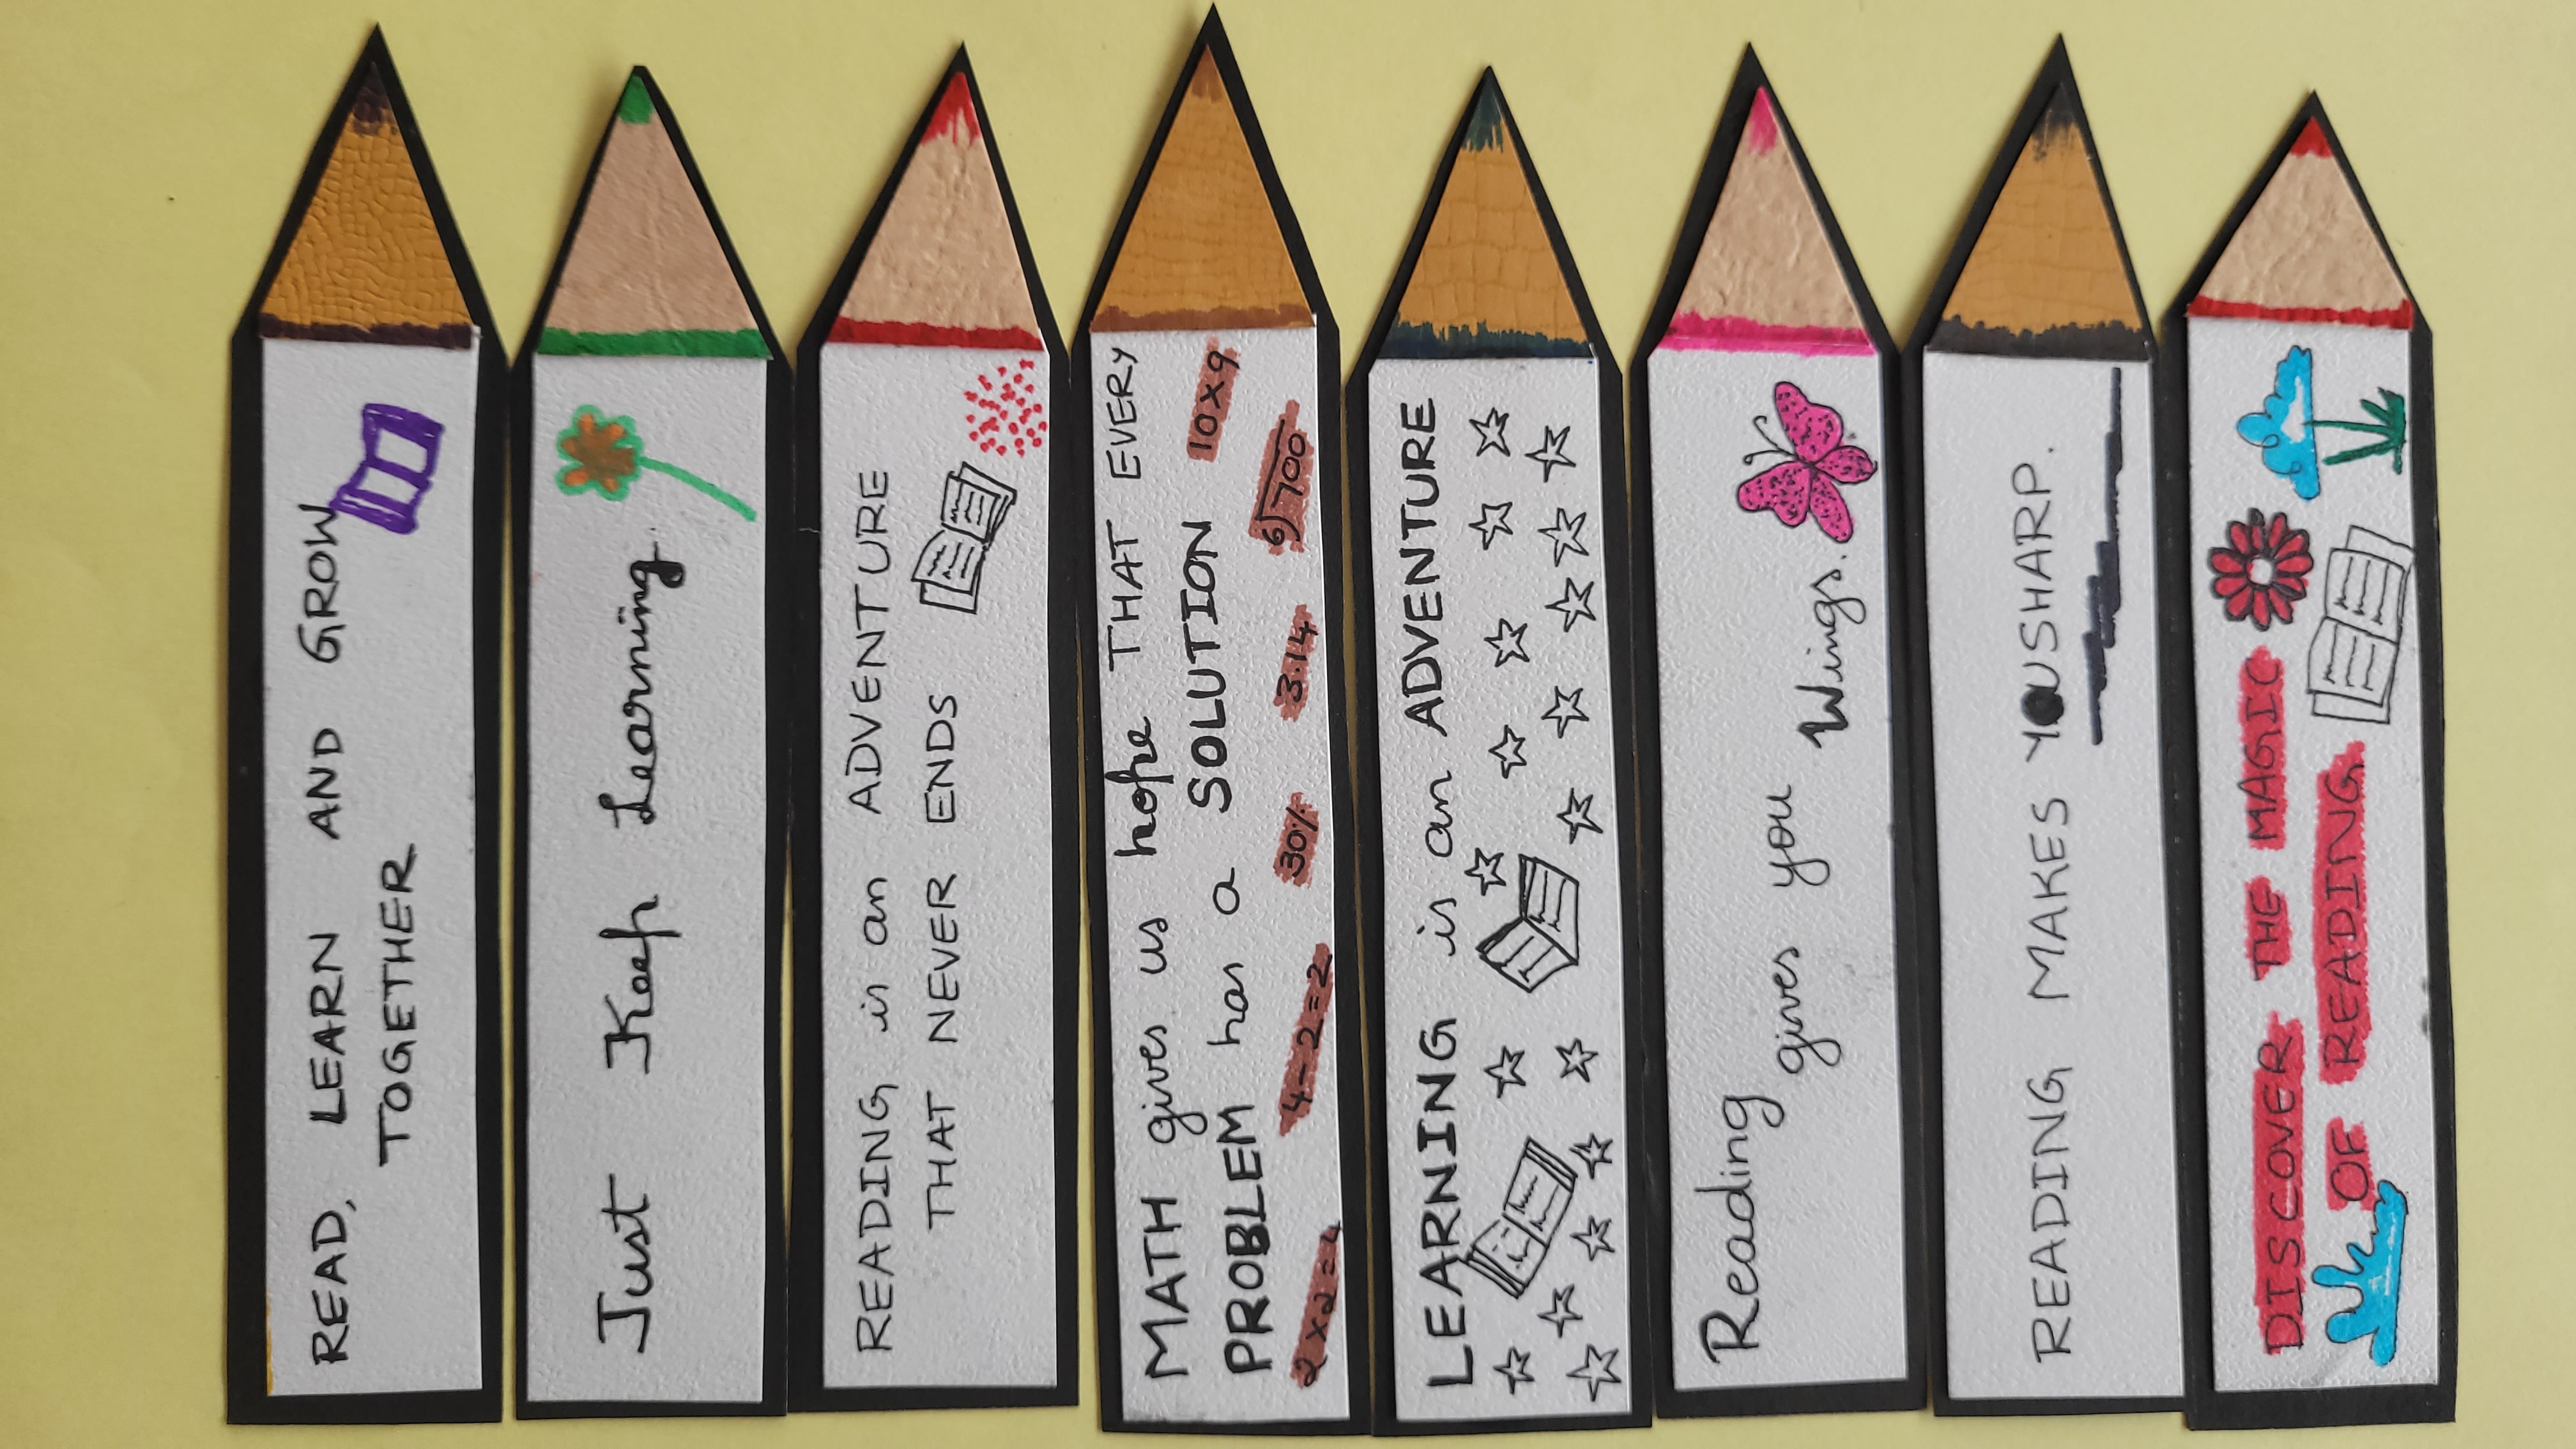 READ, LEARN AND GROW
TOGETHER
Just Keep Learning.
READING is an ADVENTURE
THAT NEVER ENDS
MATH gives us hope THAT EVERY
PROBLEM has a SOLUTION
10×9
2×2=4 4-2=2 30% 3.14 6)700
LEARNING is an ADVENTURE
Reading
gives you
Wings.
READING MAKES YOU SHARP.
DISCOVER THE MAGIC
OF READING